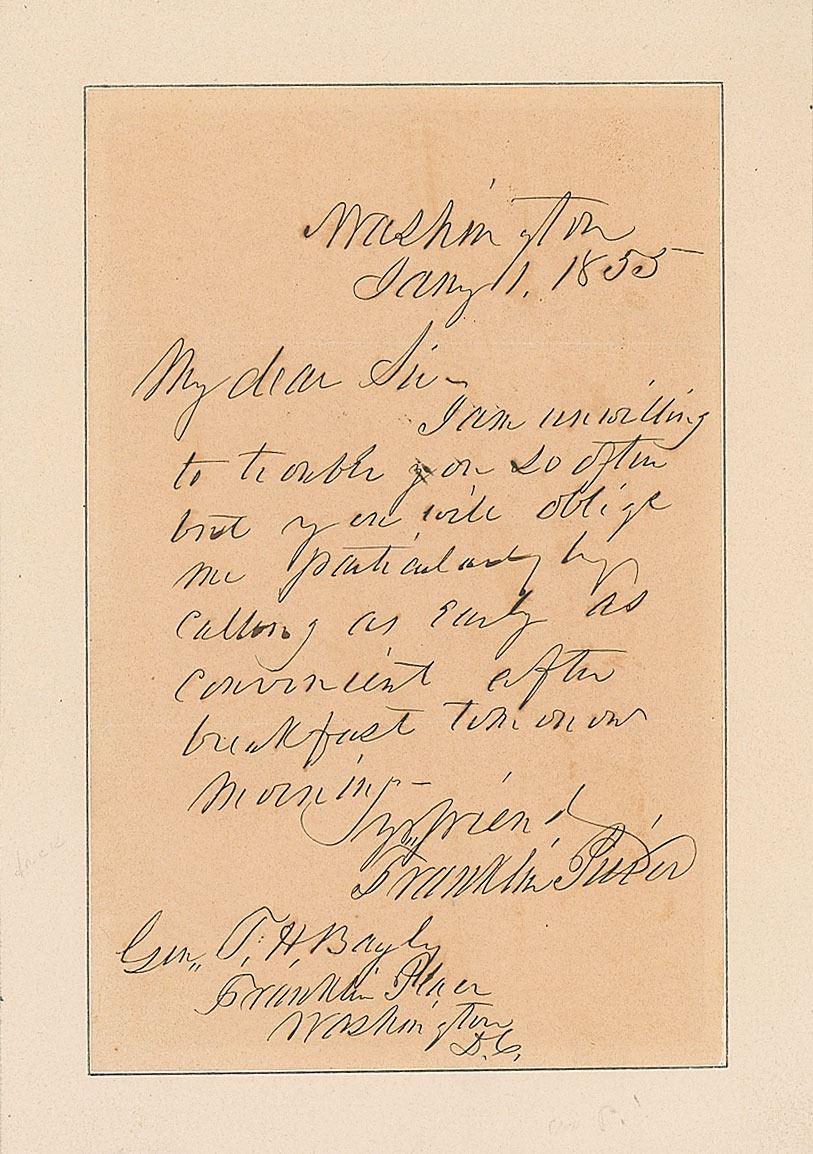 Washington
Jany 1, 1855
My dear Sir–
I am unwilling
to trouble you so often
but you will oblige
me particularly by
calling as early as
convenient after
breakfast tomorrow
morning–
Yr friend
Franklin Pierce
Gen. T. H. Bayly
Franklin Place
Washington
D.C.